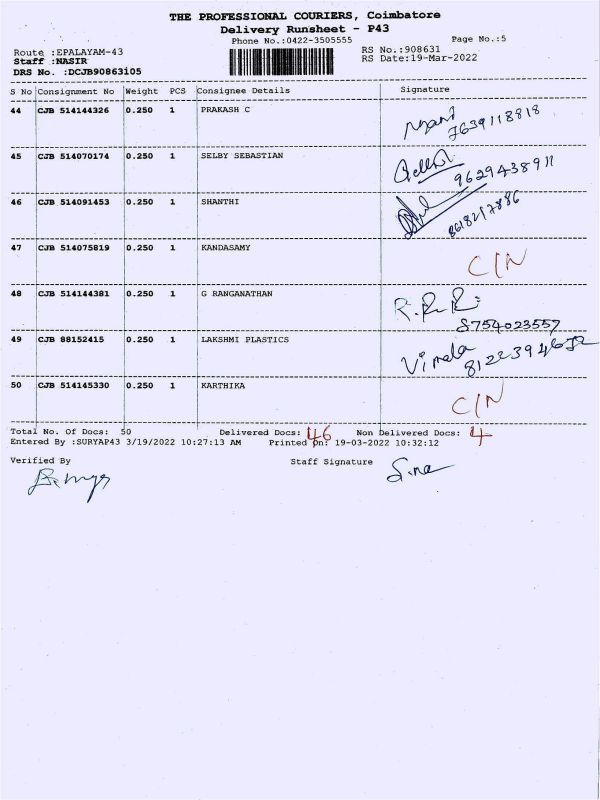 THE PROFESSIONAL COURIERS, Coimbatore
Delivery Runsheet - P43
Phone No.:0422-3505555 Page No.:5
Route :EPALAYAM-43 RS No.:908631
Staff :NASIR RS Date:19-Mar-2022
DRS No. :DCJB90863105
S No Consignment No Weight PCS Consignee Details Signature
44 CJB 514144326 0.250 1 PRAKASH C
7639118818
45 CJB 514070174 0.250 1 SELBY SEBASTIAN
9629438911
46 CJB 514091453 0.250 1 SHANTHI
8618217886
47 CJB 514075819 0.250 1 KANDASAMY
C/N
48 CJB 514144381 0.250 1 G RANGANATHAN
8754023557
49 CJB 88152415 0.250 1 LAKSHMI PLASTICS
Vimala
50 CJB 514145330 0.250 1 KARTHIKA
C/N
Total No. Of Docs: 50 Delivered Docs: 46 Non Delivered Docs: 4
Entered By :SURYAP43 3/19/2022 10:27:13 AM Printed On: 19-03-2022 10:32:12
Verified By Staff Signature